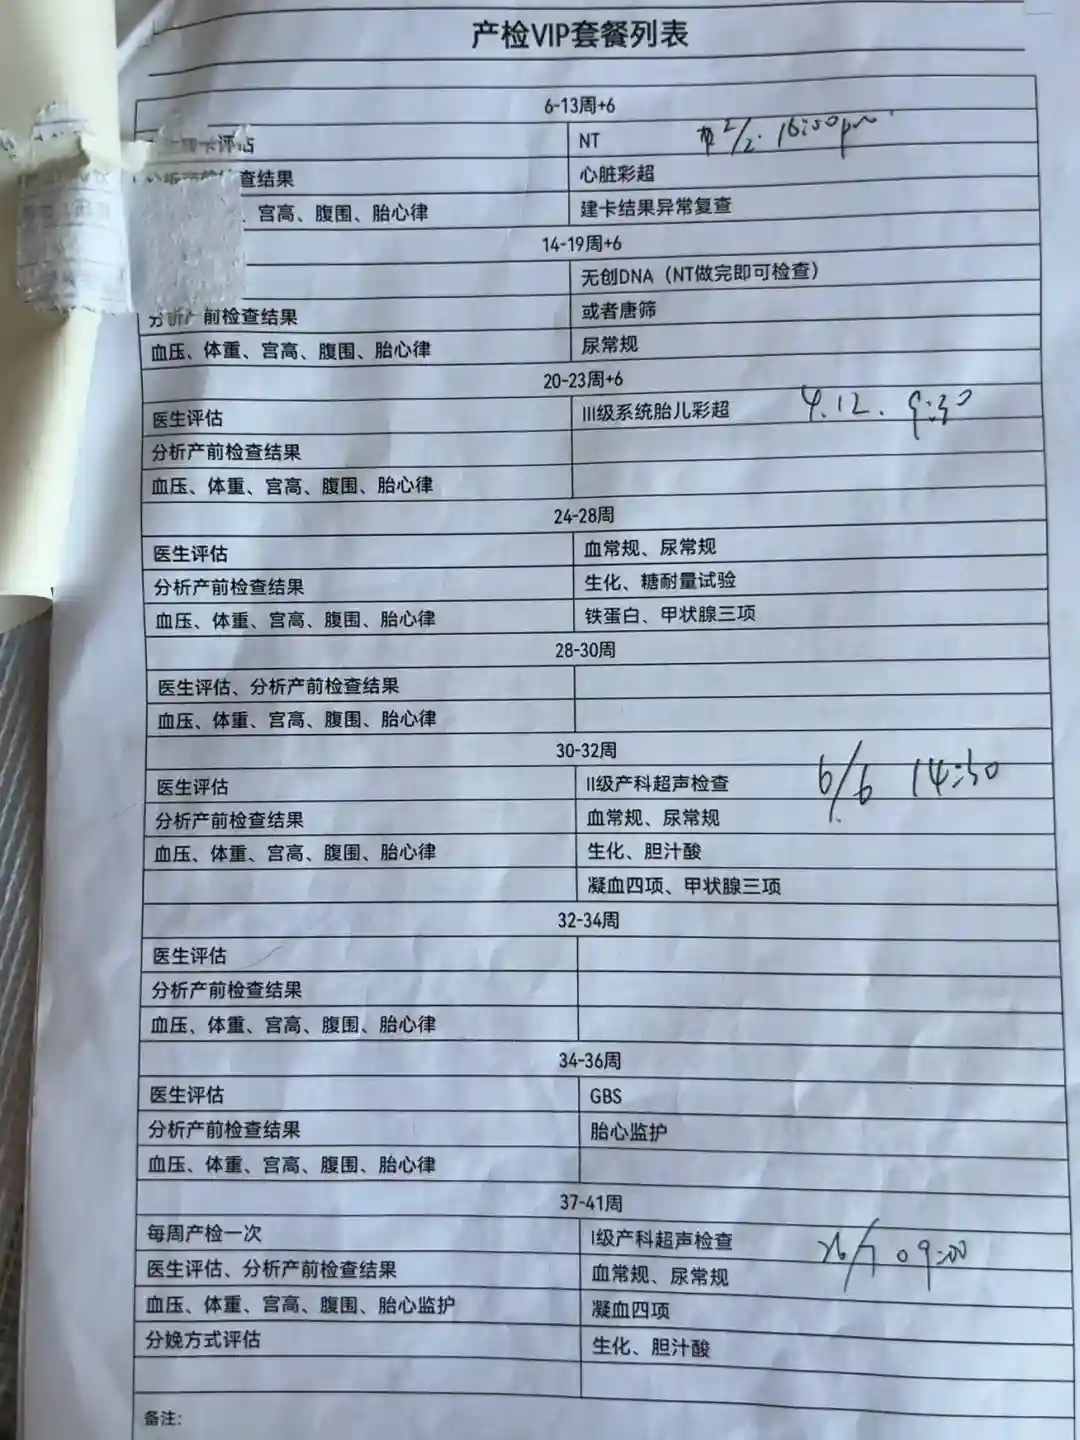 产检VIP套餐列表
6-13周+6
卡评估
NT 2/2. 16:00pm
查结果
心脏彩超
、宫高、腹围、胎心律
建卡结果异常复查
14-19周+6
无创DNA（NT做完即可检查）
分析产前检查结果
或者唐筛
血压、体重、宫高、腹围、胎心律
尿常规
20-23周+6
医生评估
III级系统胎儿彩超 4.12. 9:30
分析产前检查结果
血压、体重、宫高、腹围、胎心律
24-28周
医生评估
血常规、尿常规
分析产前检查结果
生化、糖耐量试验
血压、体重、宫高、腹围、胎心律
铁蛋白、甲状腺三项
28-30周
医生评估、分析产前检查结果
血压、体重、宫高、腹围、胎心律
30-32周
医生评估
II级产科超声检查 6/6 14:30
分析产前检查结果
血常规、尿常规
血压、体重、宫高、腹围、胎心律
生化、胆汁酸
凝血四项、甲状腺三项
32-34周
医生评估
分析产前检查结果
血压、体重、宫高、腹围、胎心律
34-36周
医生评估
GBS
分析产前检查结果
胎心监护
血压、体重、宫高、腹围、胎心律
37-41周
每周产检一次
I级产科超声检查 26/7 09:00
医生评估、分析产前检查结果
血常规、尿常规
血压、体重、宫高、腹围、胎心监护
凝血四项
分娩方式评估
生化、胆汁酸
备注: